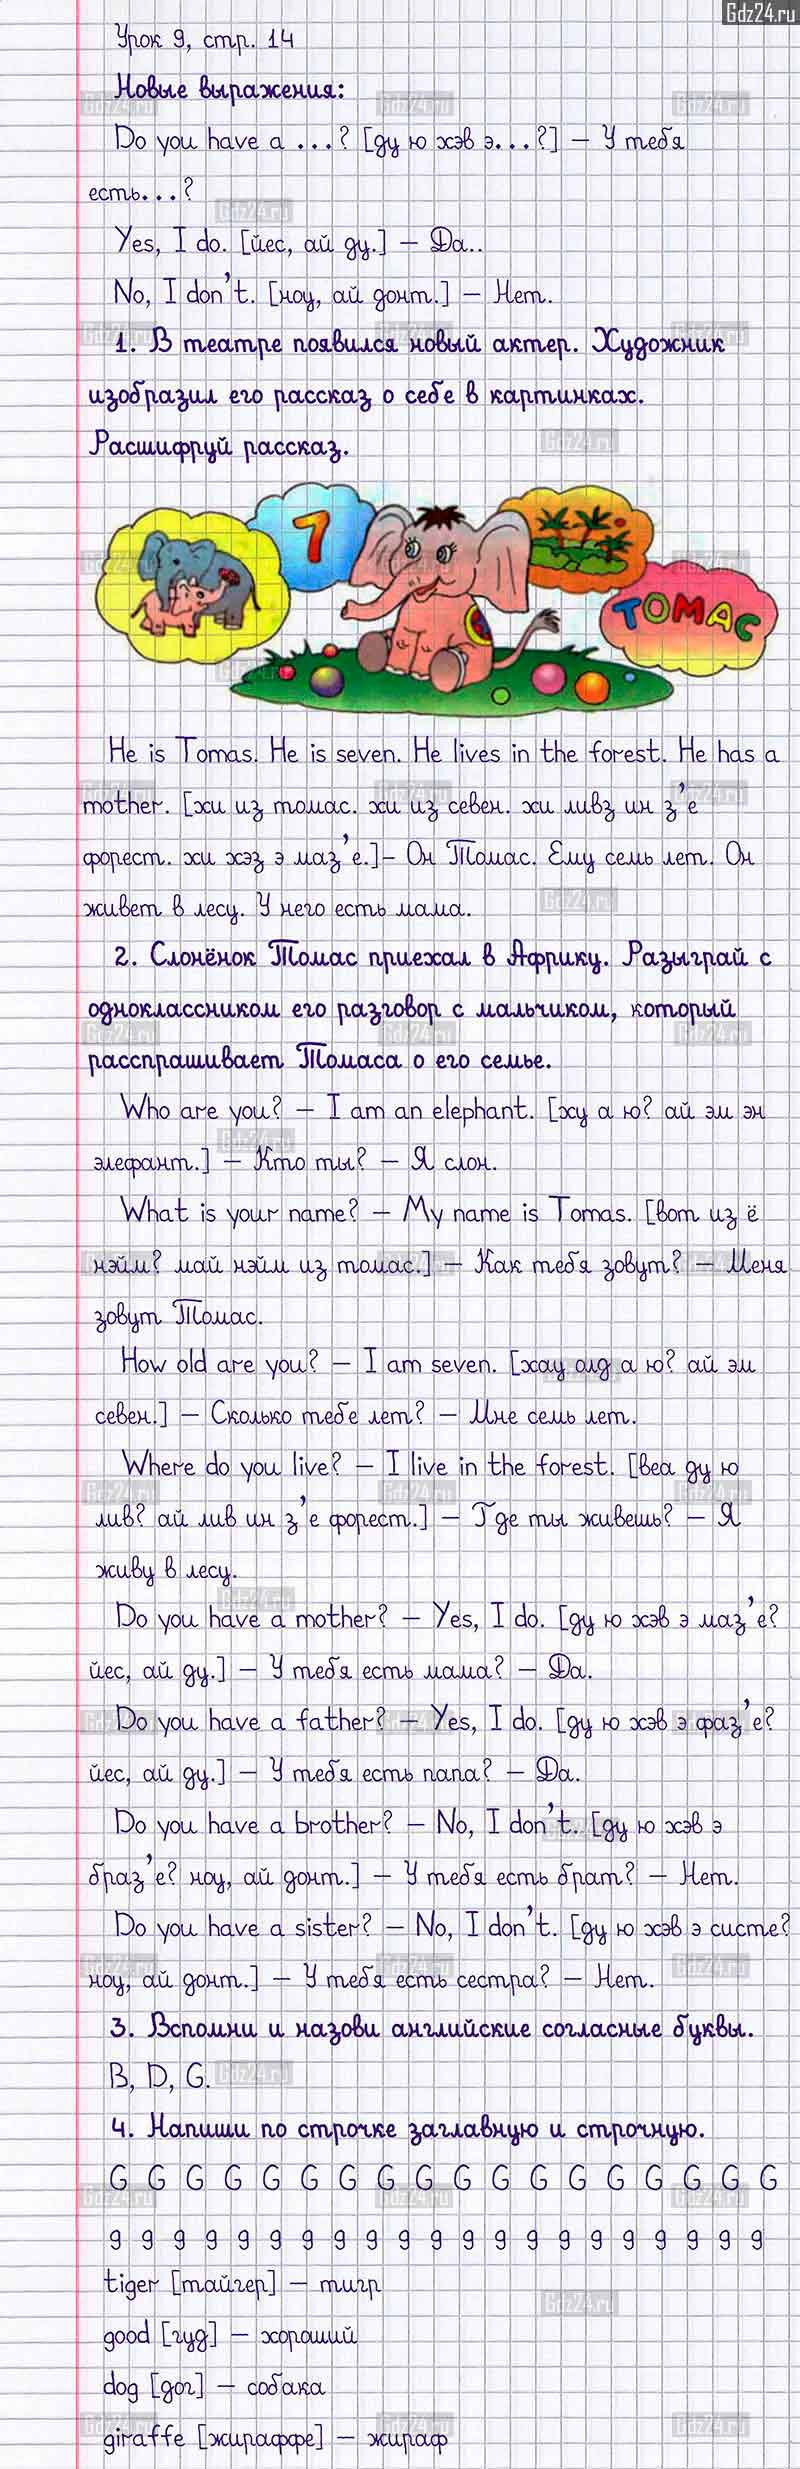 Gdz24.ru
Урок 9, стр. 14
Новые выражения:
Do you have a ...? [ду ю хэв э...?] – У тебя
есть...?
Yes, I do. [йес, ай ду.] – Да..
No, I don't. [ноу, ай донт.] – Нет.
1. В театре появился новый актер. Художник
изобразил его рассказ о себе в картинках.
Расшифруй рассказ.
7
ТОМАС
He is Tomas. He is seven. He lives in the forest. He has a
mother. [хи из томас. хи из севен. хи ливз ин з'е
форест. хи хэз э маз'е.]– Он Томас. Ему семь лет. Он
живет в лесу. У него есть мама.
2. Слонёнок Томас приехал в Африку. Разыграй с
одноклассником его разговор с мальчиком, который
расспрашивает Томаса о его семье.
Who are you? – I am an elephant. [ху а ю? ай эм эн
элефант.] – Кто ты? – Я слон.
What is your name? – My name is Tomas. [вот из ё
нэйм? май нэйм из томас.] – Как тебя зовут? – Меня
зовут Томас.
How old are you? – I am seven. [хау олд а ю? ай эм
севен.] – Сколько тебе лет? – Мне семь лет.
Where do you live? – I live in the forest. [веа ду ю
лив? ай лив ин з'е форест.] – Где ты живешь? – Я
живу в лесу.
Do you have a mother? – Yes, I do. [ду ю хэв э маз'е?
йес, ай ду.] – У тебя есть мама? – Да.
Do you have a father? – Yes, I do. [ду ю хэв э фаз'е?
йес, ай ду.] – У тебя есть папа? – Да.
Do you have a brother? – No, I don't. [ду ю хэв э
браз'е? ноу, ай донт.] – У тебя есть брат? – Нет.
Do you have a sister? – No, I don't. [ду ю хэв э систе?
ноу, ай донт.] – У тебя есть сестра? – Нет.
3. Вспомни и назови английские согласные буквы.
B, D, G.
4. Напиши по строчке заглавную и строчную.
G G G G G G G G G G G G G G G G G G
g g g g g g g g g g g g g g g g g g g g g
tiger [тайгер] – тигр
good [гуд] – хороший
dog [дог] – собака
giraffe [жираффе] – жираф